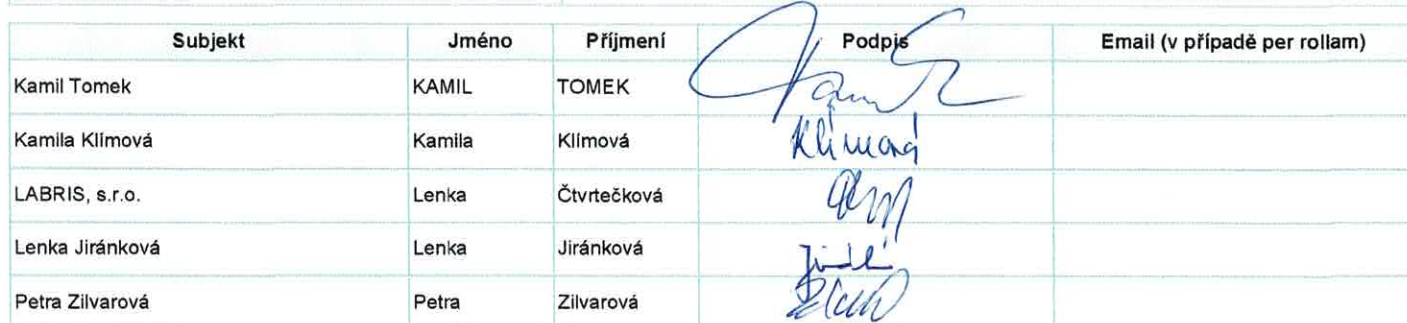 Subjekt Jméno Příjmení Podpis Email (v případě per rollam)
Kamil Tomek KAMIL TOMEK
Kamila Klímová Kamila Klímová Klímová
LABRIS, s.r.o. Lenka Čtvrtečková
Lenka Jiránková Lenka Jiránková
Petra Zilvarová Petra Zilvarová